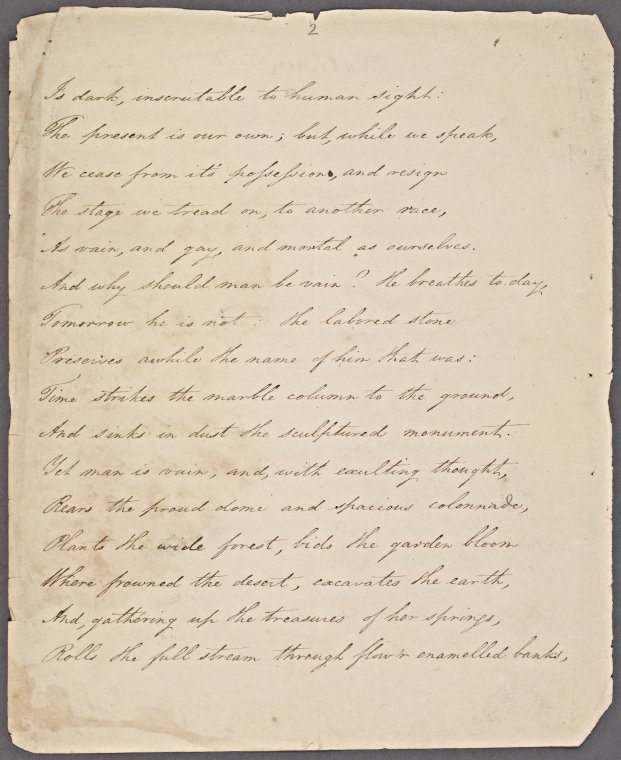 2
Is dark, inscrutable to human sight:
The present is our own; but, while we speak,
We cease from it's poſseſsion, and resign
The stage we tread on, to another race,
As vain, and gay, and mortal as ourselves.
And why should man be vain? He breathes to-day,
Tomorrow he is not: the labored stone
Preserves awhile the name of him that was:
Time strikes the marble column to the ground,
And sinks in dust the sculptured monument.
Yet man is vain, and, with exulting thought,
Rears the proud dome and spacious colonnade,
Plants the wide forest, bids the garden bloom
Where frowned the desert, excavates the earth,
And, gathering up the treasures of her springs,
Rolls the full stream through flow'r enamelled banks,